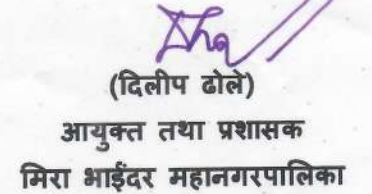 (दिलीप ढोले)
आयुक्त तथा प्रशासक
मिरा भाईंदर महानगरपालिका